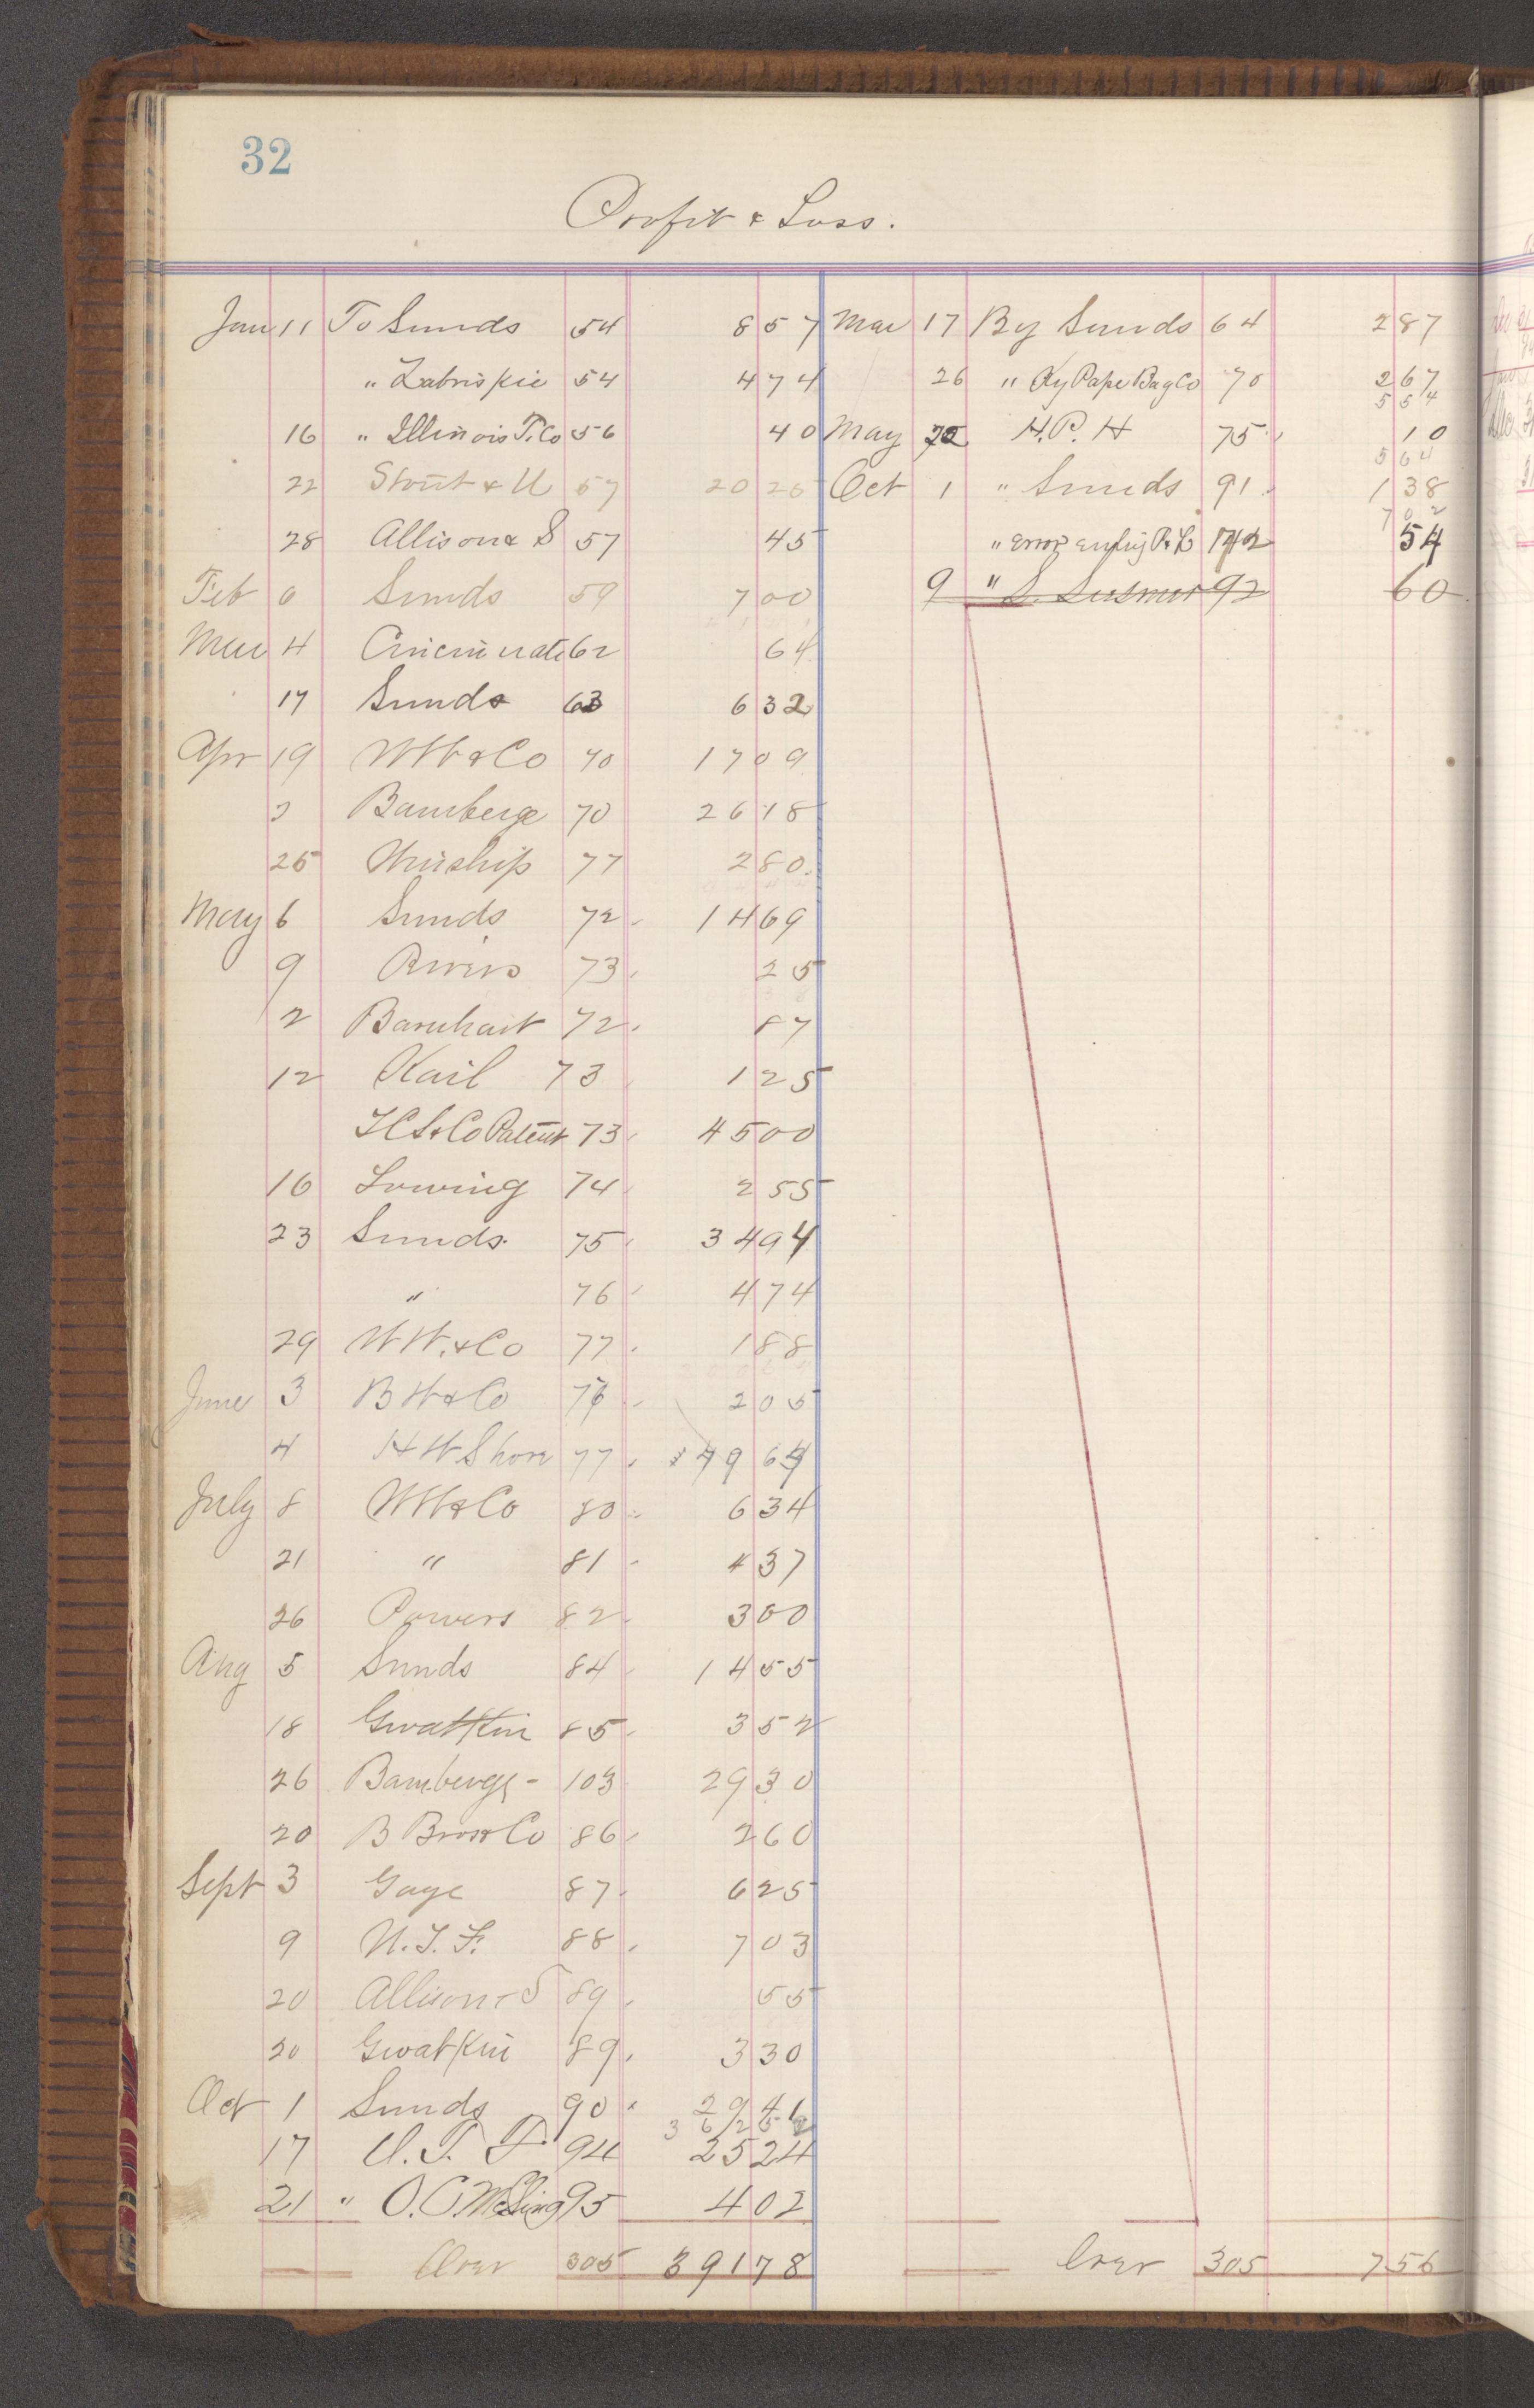 32
Profit & Loss.
Jan 11 To Sunds 54 8 57 Mar 17 By Sunds 64 2 87
" Zabriskie 54 4 74 26 " Ky Pape Bag Co 70 2 67
5 54
16 " Illinois T. Co 56 40 May H. P. H 75 10
5 64
22 Stout & U 57 20 25 Oct 1 " Sunds 91 1 38
7 02
28 Allison & S 57 45 " error 142 54
Feb 6 Sunds 59 7 00 9 " S. 92 60
Mar 4 Cincinnati 62 64
17 Sunds 63 6 32
Apr 19 WW & Co 70 17 09
2 Bamberge 70 26 18
25 Winship 77 2 80
May 6 Sunds 72 14 69
9 73 25
2 Barnhart 72 87
12 Kail 73 1 25
& Co Patent 73 45 00
16 Lowing 74 2 55
23 Sunds 75 34 94
" 76 4 74
29 W W. & Co 77 1 88
June 3 B W & Co 76 2 05
4 H W Shore 77
July 8 WW & Co 80 6 34
21 " 81 4 37
26 Powers 82 3 00
Aug 5 Sunds 84 14 55
18 Gwatkin 85 3 52
26 Bamberge - 103 29 30
20 B Bros & Co 86 2 60
Sept 3 Gage 87 6 25
9 88 7 03
20 Allison & S 89 55
20 Gwatkin 89 3 30
Oct 1 Sunds 90 29 41
17 94 25 24
21 " 95 4 02
Over 305 391 78 Over 305 7 56